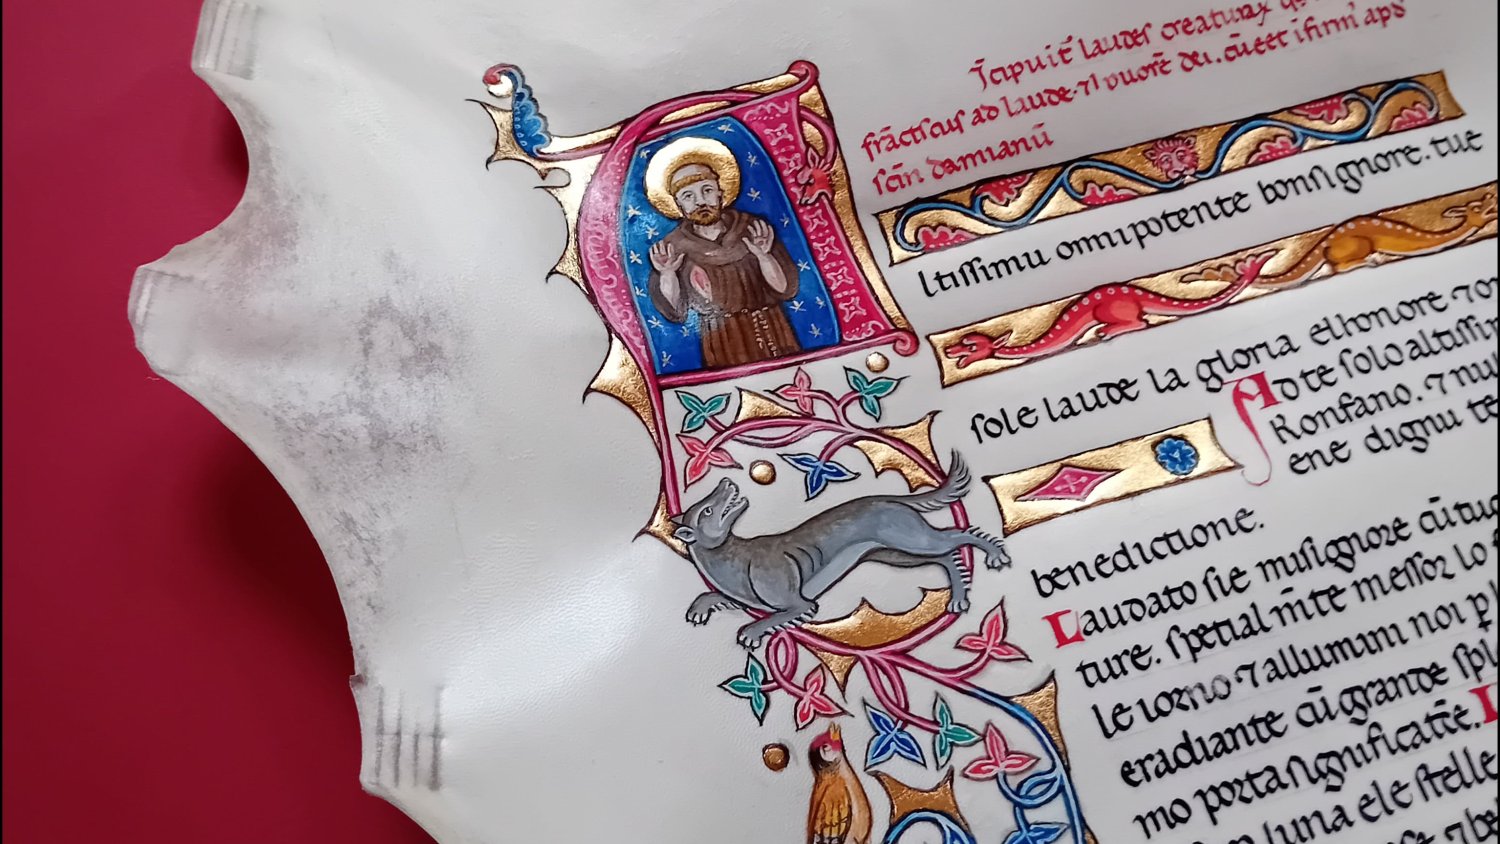 Īcipuīt laudeſ creaturaꝝ
frāctſcuſ ad laude. ⁊ dei. cū eet ifirm' apd
ſcm damianū
Altiſſimu omnipotente bonſignore. tue
ſole laude la gloria elhonore ⁊
Ad te ſolo altiſſim
Konfano. ⁊ nul
ene dignu te
benedictione.
Laudato ſie miſignore cū tuc
ture. ſpetialm̄te meſſor lo
le iorno ⁊ allumini noi
eradiante cū grande ſpl
mo porta ſignificatiōe. L
luna ele ſtelle